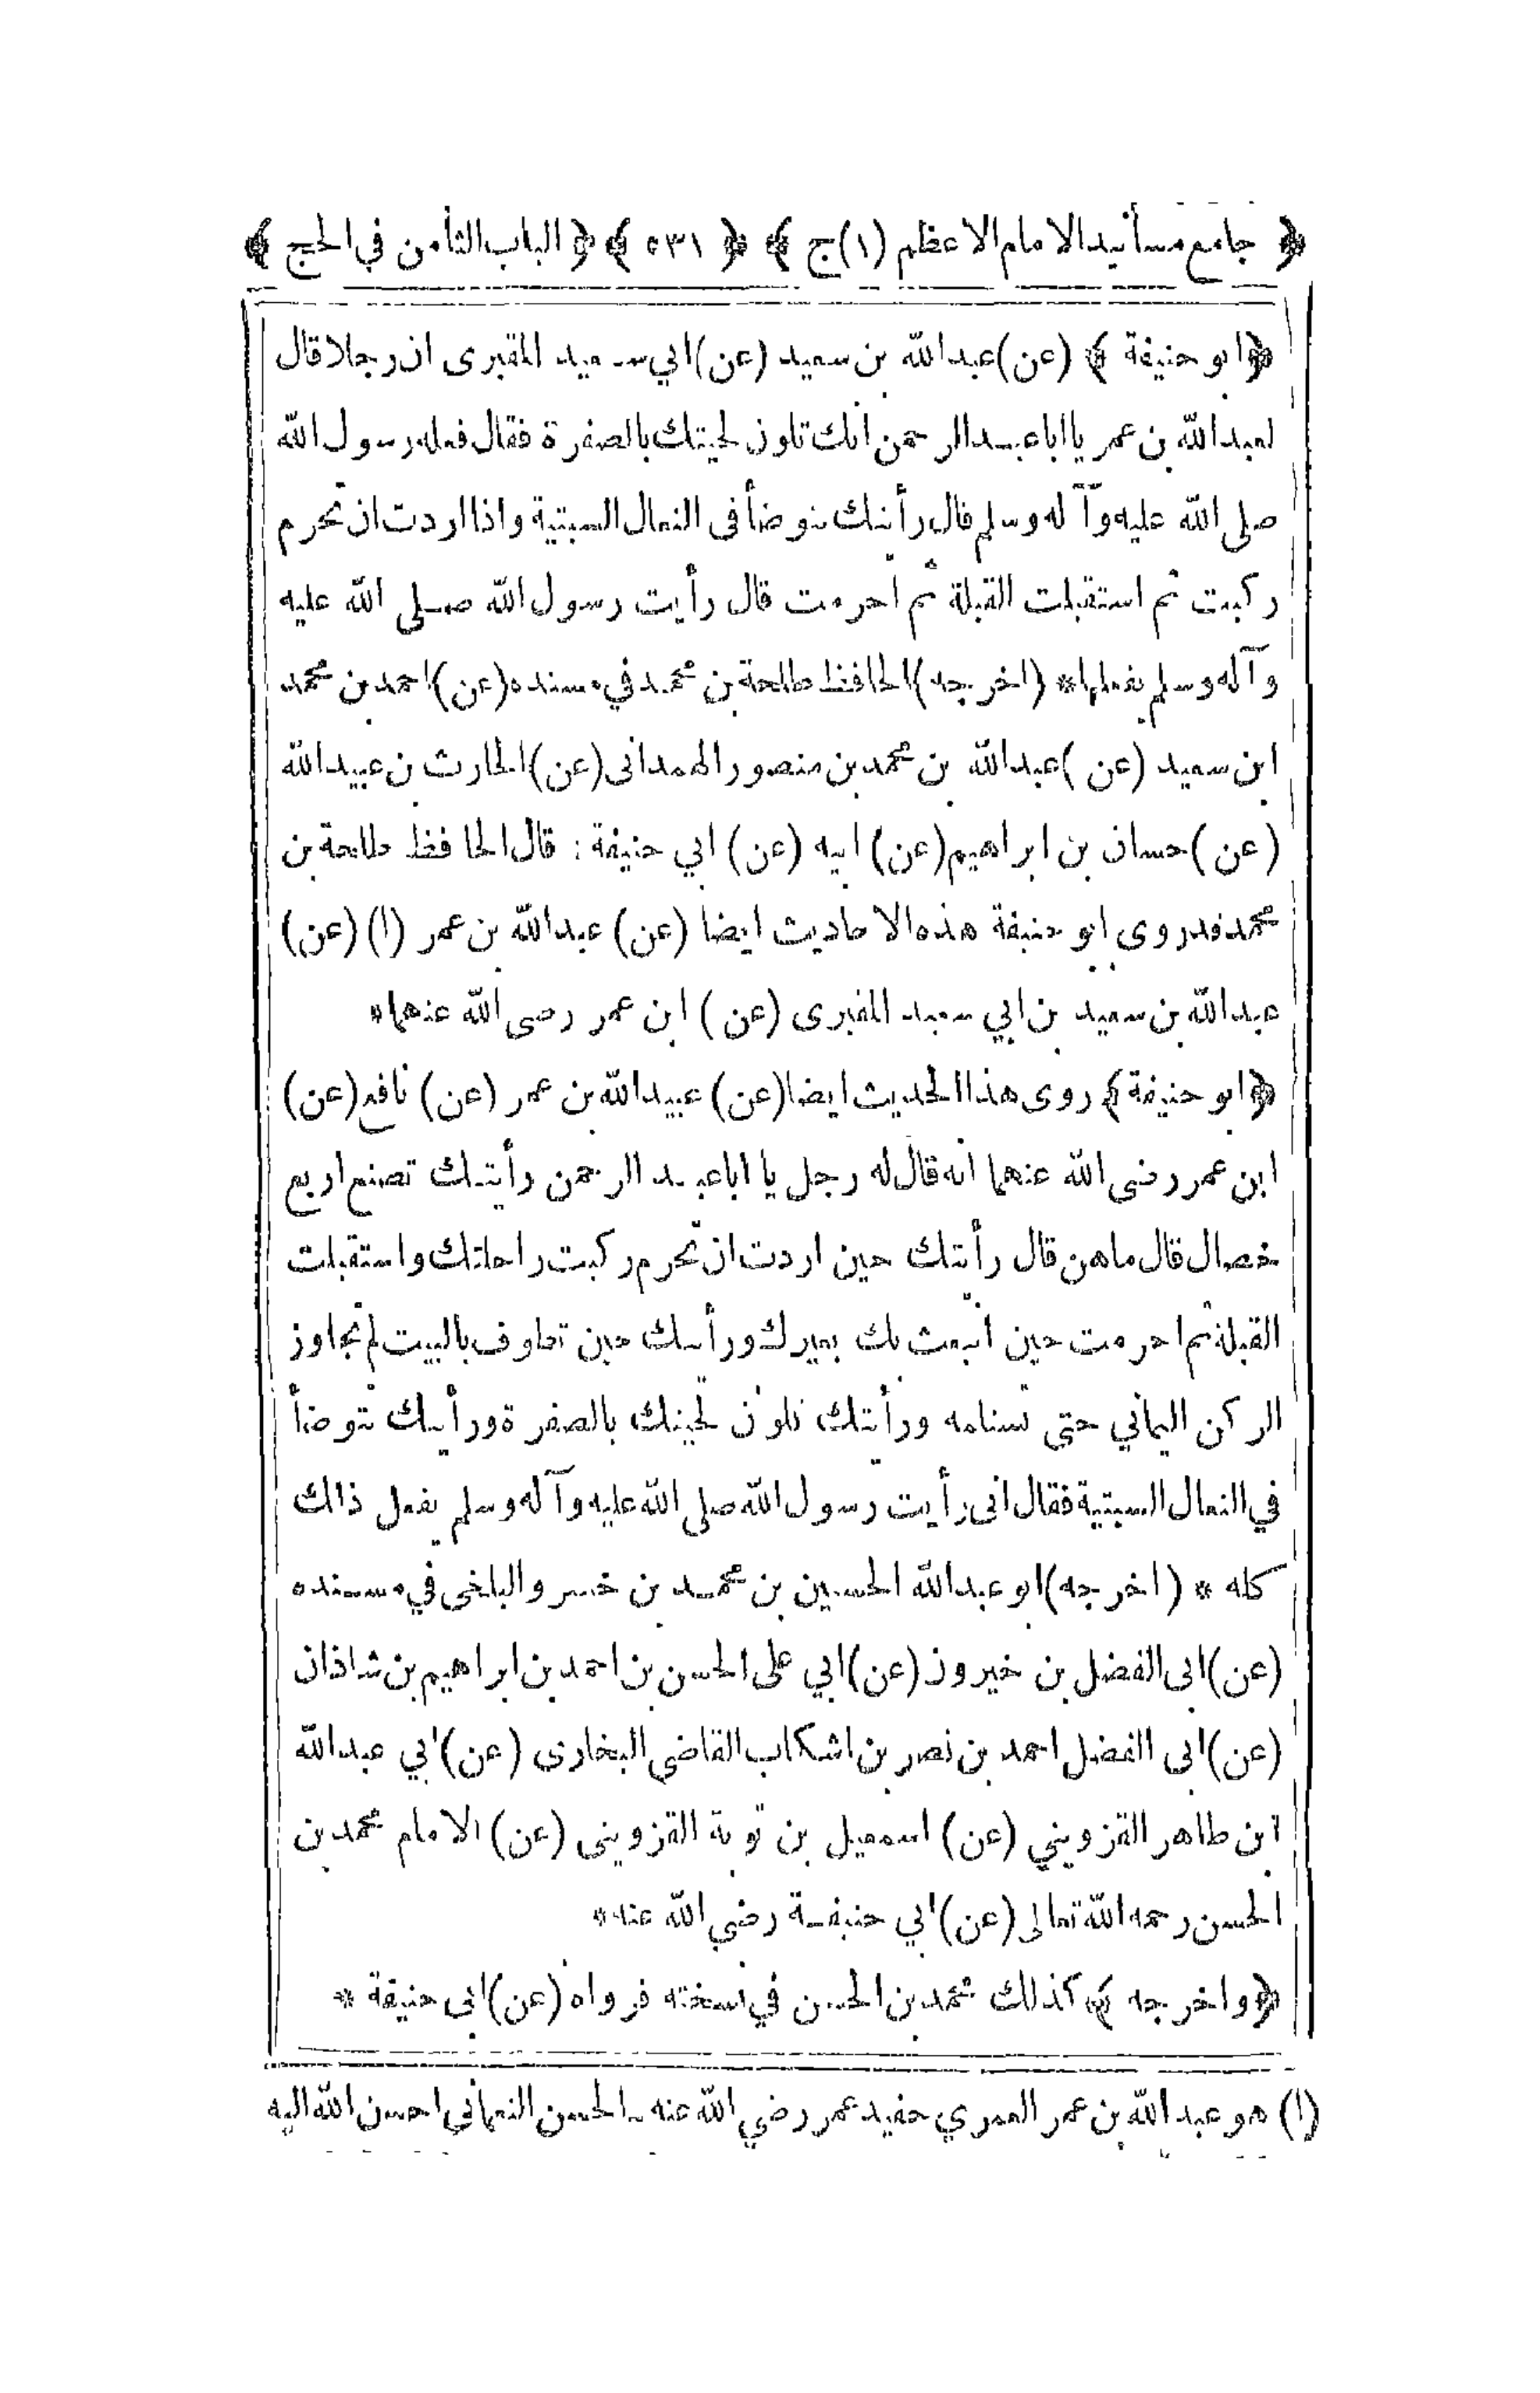 ﴿ جامع مسانيد الامام الاعظم (١) ج ﴾ ﴿ ٥٣١ ﴾ ﴿ الباب الثامن في الحج ﴾
﴿ ابو حنيفة ﴾ (عن) عبدالله بن سعيد (عن) ابي سعيد المقبرى ان رجلا قال
لعبدالله بن عمر يا ابا عبدالرحمن انك تلون لحيتك بالصفرة فقال فعله رسول الله
صلى الله عليه وآله وسلم قال رأيتك تتوضأ فى النعال السبتية واذا اردت ان تحرم
ركبت ثم استقبلت القبلة ثم احرمت قال رأيت رسول الله صلى الله عليه
وآله وسلم يفعلها * (اخرجه) الحافظ طلحة بن محمد في مسنده (عن) احمد بن محمد
ابن سعيد (عن) عبدالله بن محمد بن منصور الهمدانى (عن) الحارث بن عبيدالله
(عن) حسان بن ابراهيم (عن) ابيه (عن) ابي حنيفة : قال الحافظ طلحة بن
محمد قد روى ابو حنيفة هذه الاحاديث ايضا (عن) عبدالله بن عمر (١) (عن)
عبدالله بن سعيد بن ابي سعيد المقبرى (عن) ابن عمر رضى الله عنهما *
﴿ ابو حنيفة ﴾ روى هذا الحديث ايضا (عن) عبيدالله بن عمر (عن) نافع (عن)
ابن عمر رضى الله عنهما انه قال له رجل يا ابا عبد الرحمن رأيتك تصنع اربع
خصال قال ماهن قال رأيتك حين اردت ان تحرم ركبت راحلتك واستقبلت
القبلة ثم احرمت حين انبعث بك بعيرك ورأيتك حين تطوف بالبيت لم تجاوز
الركن اليماني حتى تستلمه ورأيتك تلون لحيتك بالصفرة ورأيتك تتوضأ
في النعال السبتية فقال انى رأيت رسول الله صلى الله عليه وآله وسلم يفعل ذلك
كله * (اخرجه) ابو عبدالله الحسين بن محمد بن خسرو البلخى في مسنده
(عن) ابى الفضل بن خيرون (عن) ابي على الحسن بن احمد بن ابراهيم بن شاذان
(عن) ابى الفضل احمد بن نصر بن اشكاب القاضي البخارى (عن) ابي عبدالله
ابن طاهر القزويني (عن) اسمعيل بن توبة القزوينى (عن) الامام محمد بن
الحسن رحمه الله تعالى (عن) ابي حنيفة رضي الله عنه *
﴿ واخرجه ﴾ كذلك محمد بن الحسن في نسخته فرواه (عن) ابى حنيفة *
(١) هو عبدالله بن عمر العمري حفيد عمر رضي الله عنه ـ الحسن النعماني احسن الله اليه